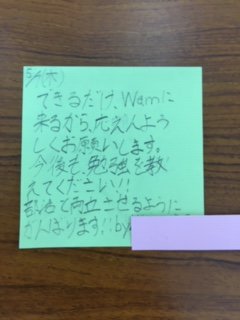 5/7(木)
できるだけ、Wamに
来るから、応えんよろ
しくお願いします。
今後も、勉強を教
えてください!!
部活と両立させるように
がんばります!!by